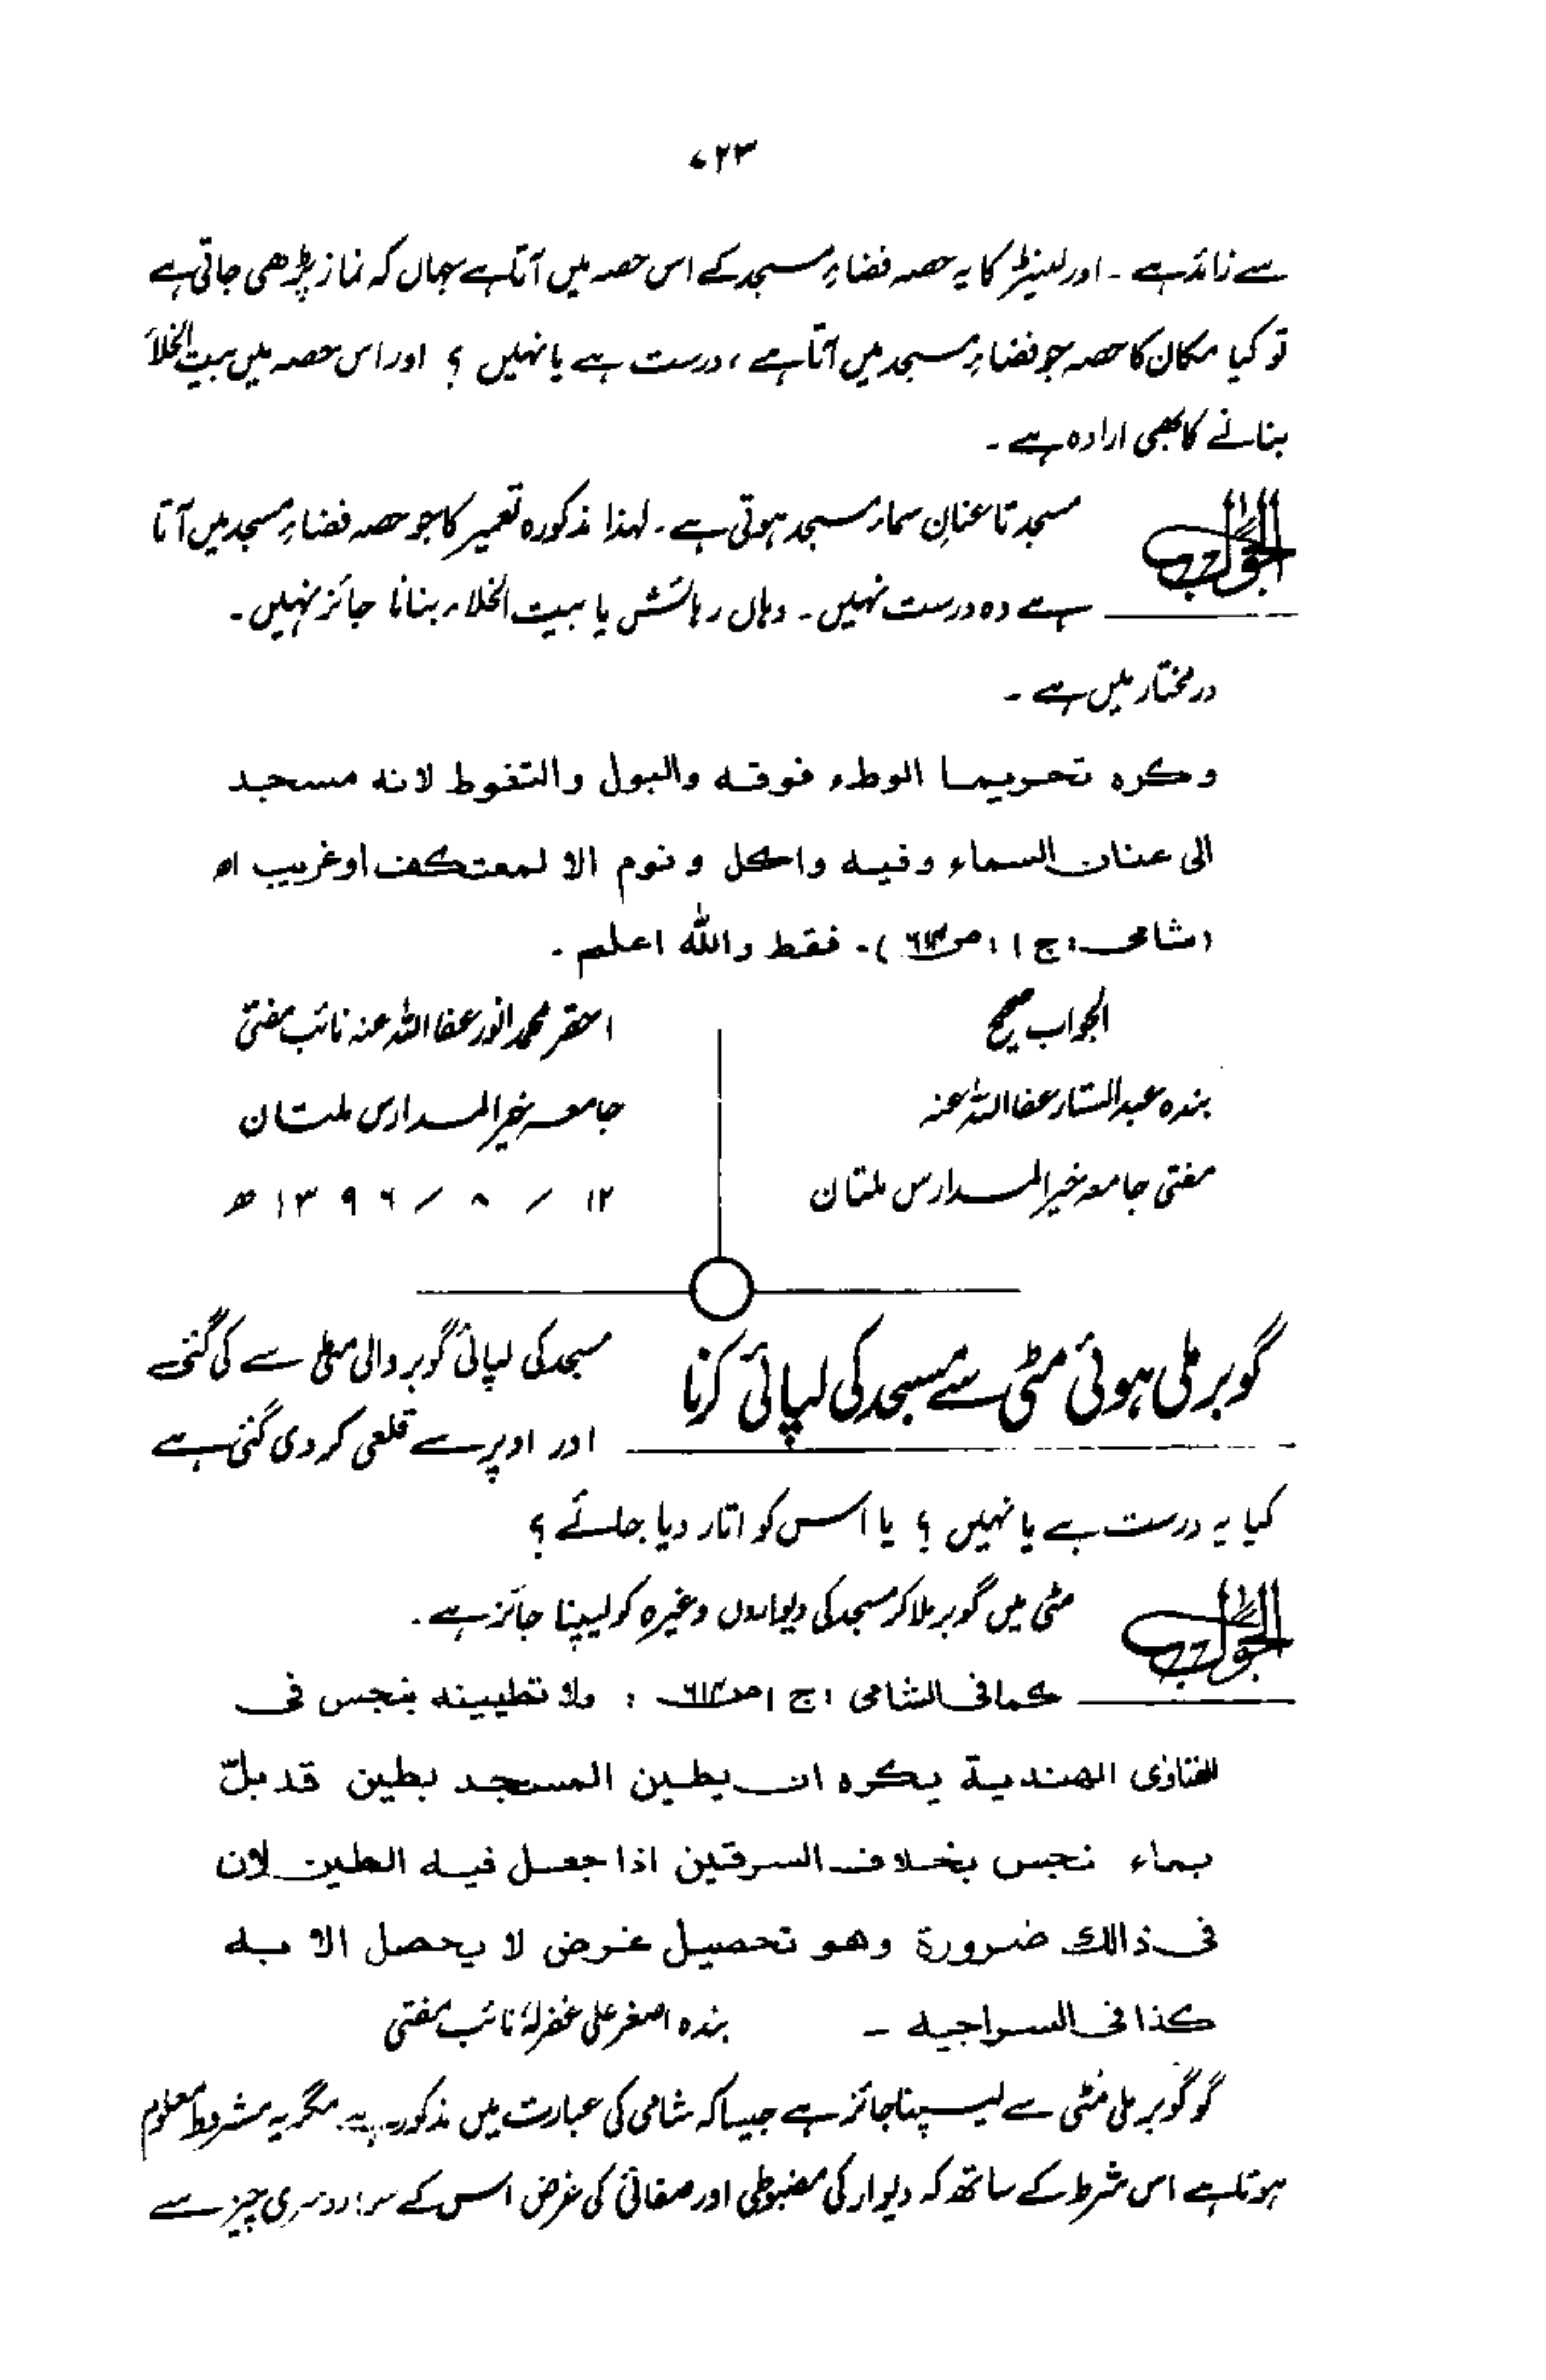 ۷۲۳
سے زائد ہے ۔ اور لینٹر کا یہ حصہ فضاءِ مسجد کے اس حصہ میں آتا ہے جہاں کہ نماز پڑھی جاتی ہے
تو کیا مکان کا حصہ جو فضاءِ مسجد میں آتا ہے ، درست ہے یا نہیں ؟ اور اس حصہ میں بیت الخلاَ
بنانے کا بھی ارادہ ہے ۔
الجواب مسجد تا عنانِ سماء مسجد ہوتی ہے ۔ لہذا مذکورہ تعمیر کا جو حصہ فضاءِ مسجد میں آتا
ہے وہ درست نہیں ۔ وہاں رہائش یا بیت الخلاء بنانا جائز نہیں ۔
درمختار میں ہے ۔
وكره تحريما الوطء فوقه والبول والتغوط لانه مسجد
الى عنان السماء وفيه واكل ونوم الا لمعتكف اوغريب اه
(شامی : ج ۱ ، ص ۶۱۴) ۔ فقط واللہ اعلم ۔
الجواب صحیح
بندہ عبدالستار عفا اللہ عنہ
مفتی جامعہ خیر المدارس ملتان
احقر محمد انور عفا اللہ عنہ نائب مفتی
جامعہ خیر المدارس ملتان
۱۲ / ۸ / ۱۳۹۶ ھ
گوبر ملی ہوئی مٹی سے مسجد کی لپائی کرنا
مسجد کی لپائی گوبر والی مٹی سے کی گئی ہے
اور اوپر سے قلعی کر دی گئی ہے
کیا یہ درست ہے یا نہیں ؟ یا اس کو اتار دیا جائے ؟
الجواب مٹی میں گوبر ملا کر مسجد کی دیواروں وغیرہ کو لیپنا جائز ہے ۔
كمافى الشامى ، ج ۱ ص ۶۱۴ : ولا تطيينه بنجس فى
الفتاوى الهندية يكره ان يطين المسجد بطين قد بلّ
بماء نجس بخلاف السرقين اذا جعل فيه الطين لان
فى ذالك ضرورة وهو تحصيل غرض لا يحصل الا به
كذا فى السراجيه ۔ بندہ اصغر علی غفرلہٗ نائب مفتی
گو گوبر ملی مٹی سے لیپنا جائز ہے جیسا کہ شامی کی عبارت میں مذکور ہے مگر یہ مشروط معلوم
ہوتا ہے اس شرط کے ساتھ کہ دیوار کی مضبوطی اور صفائی کی غرض اس کے سوا دوسری چیز سے